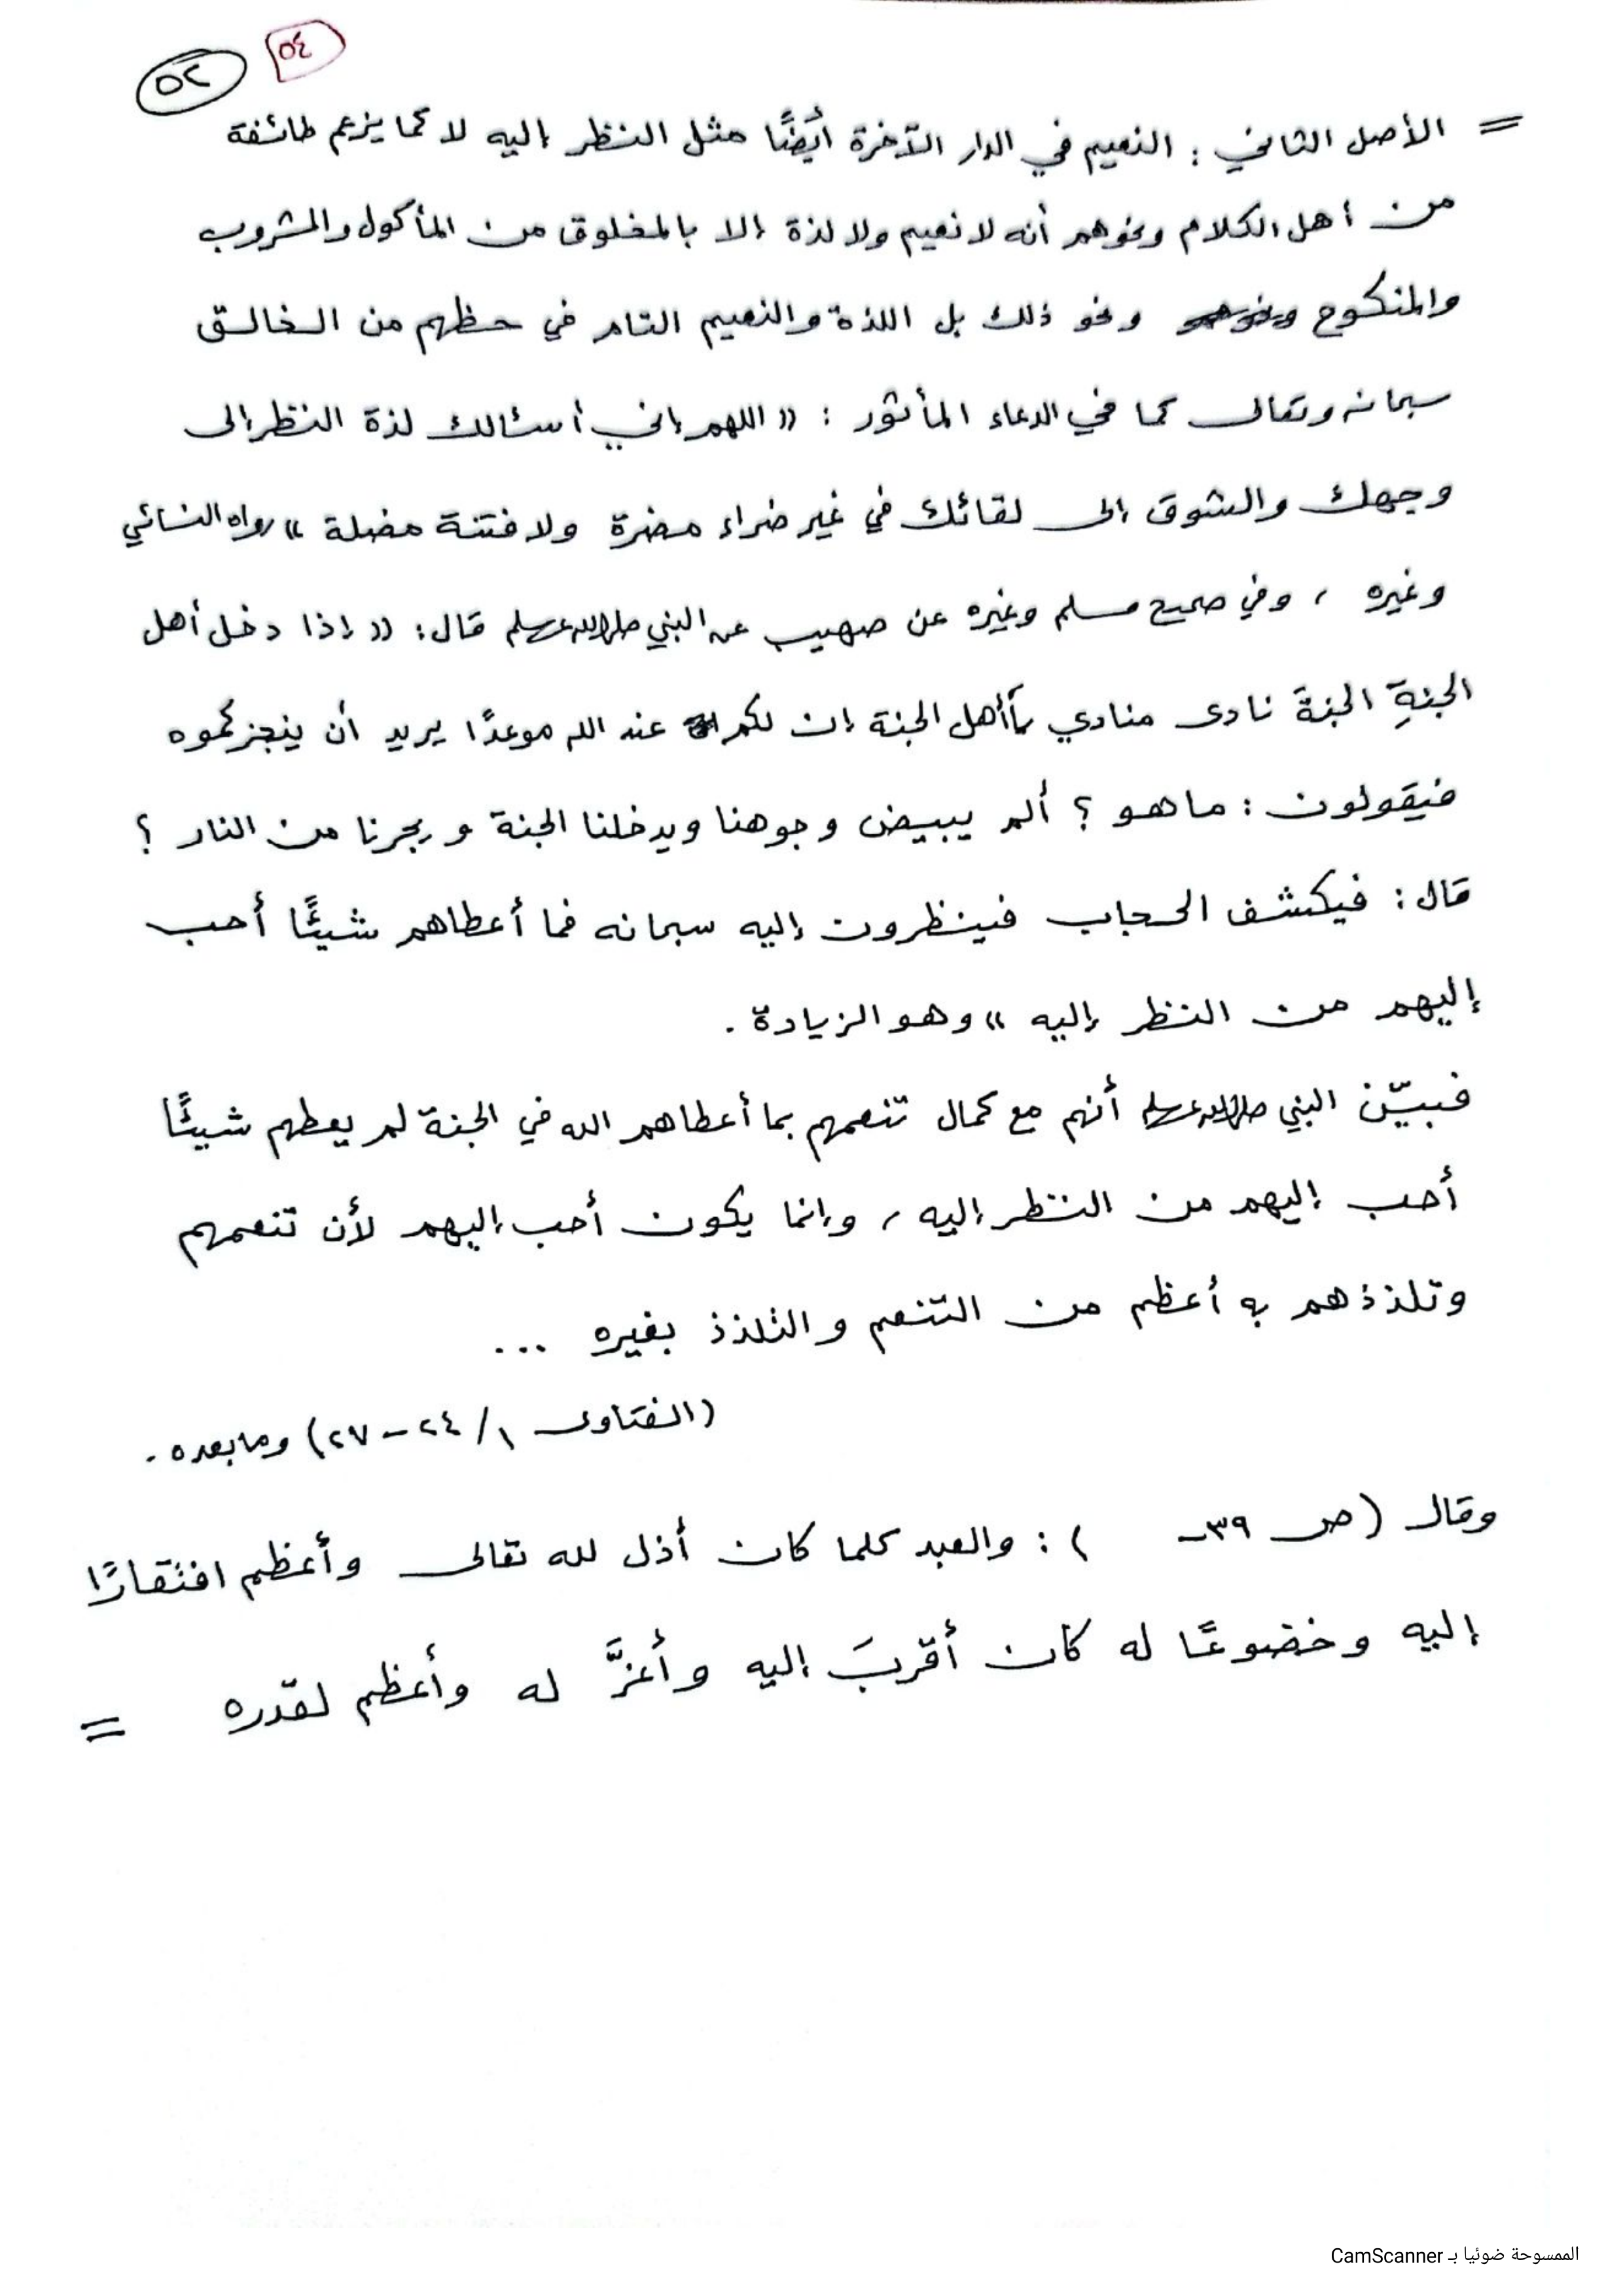 ٥٤
٥٢
= الأصل الثاني : النعيم في الدار الآخرة أيضًا مثل النظر إليه لا كما يزعم طائفة
من أهل الكلام ونحوهم أنه لا نعيم ولا لذة إلا بالمخلوق من المأكول والمشروب
والمنكوح ونحو ذلك بل اللذة والنعيم التام في حظهم من الخالق
سبحانه وتعالى كما في الدعاء المأثور : (( اللهم إني أسئالك لذة النظر إلى
وجهك والشوق إلى لقائك في غير ضراء مضرة ولا فتنة مضلة )) رواه النسائي
وغيره ، وفي صحيح مسلم وغيره عن صهيب عن النبي صلى الله عليه وسلم قال : (( إذا دخل أهل
الجنةِ الجنةَ نادى منادي يا أهل الجنة إن لكم عند الله موعدًا يريد أن ينجزكموه
فيقولون : ما هو ؟ ألم يبيض وجوهنا ويدخلنا الجنة ويجرنا من النار ؟
قال : فيكشف الحجاب فينظرون إليه سبحانه فما أعطاهم شيئًا أحب
إليهم من النظر إليه )) وهو الزيادة .
فبيّن النبي صلى الله عليه وسلم أنهم مع كمال تنعمهم بما أعطاهم الله في الجنة لم يعطهم شيئًا
أحب إليهم من النظر إليه ، وإنما يكون أحب إليهم لأن تنعمهم
وتلذذهم به أعظم من التنعم والتلذذ بغيره ...
(الفتاوى ١/ ٢٤ - ٢٧) وما بعده .
وقال (ص ٣٩- ) : والعبد كلما كان أذل لله تعالى وأعظم افتقارًا
إليه وخضوعًا له كان أقربَ إليه وأعزَّ له وأعظم لقدره =
الممسوحة ضوئيا بـ CamScanner